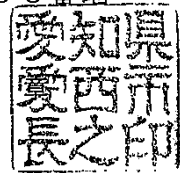 愛知県
愛西市
長之印